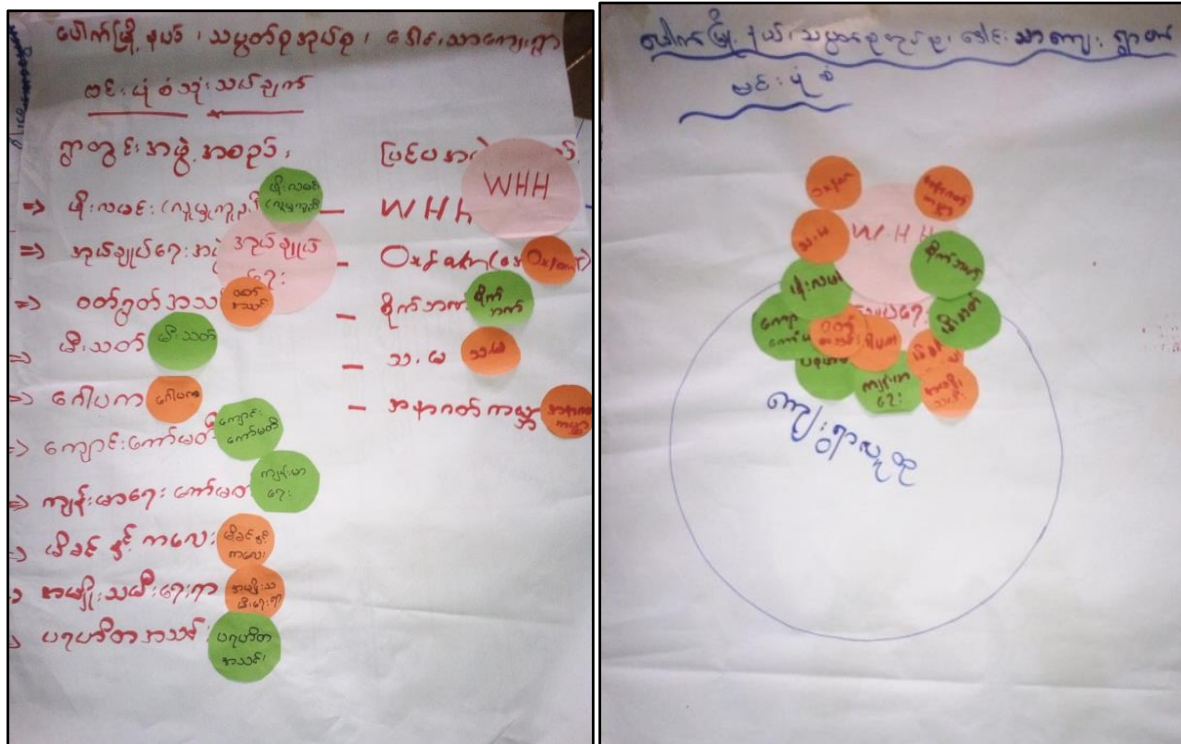 ပေါက်မြို့နယ်၊ သပွတ်စုအုပ်စု၊ ဒေါင်းသာကျေးရွာ
ဗင်းပုံစံသုံးသပ်ချက်
ရွာတွင်းအဖွဲ့အစည်း
⇒ ဖိုးလမင်း
ဖိုးလမင်း
⇒ အုပ်ချုပ်ရေး
အုပ်ချုပ်
ရေး
⇒ ဝတ်ရွတ်အသင်း
ဝတ်
အသင်း
⇒ မီးသတ်
မီးသတ်
⇒ ဂေါပက
ဂေါပက
⇒ ကျောင်းကော်မတီ
ကျောင်း
ကော်မတီ
⇒ ကျန်းမာရေး ကော်မတီ
ကျန်းမာ
ရေး
⇒ မိခင်နှင့် ကလေး
မိခင်နှင့်
ကလေး
အမျိုးသမီးရေးရာ
အမျိုးသ
မီးရေးရာ
ပရဟိတအသင်း
ပရဟိတ
အသင်း
ပြင်ပ
WHH
– WHH
– Oxfam
Oxfam
– စိုက်ဘဏ်
စိုက်
ဘဏ်
– သ.မ
သ.မ
– အနာဂတ်ကမ္ဘာ
အနာဂတ်
ကမ္ဘာ
ပေါက်မြို့နယ်၊ သပွတ်စုအုပ်စု၊ ဒေါင်းသာကျေးရွာ
ဗင်းပုံစံ
အနာဂတ်
ကမ္ဘာ
သ.မ
WHH
စိုက်ဘဏ်
ဖိုးလမင်း
မီးသတ်
ကျောင်း
ကော်မ
ဝတ်
အသင်း
ဂေါပက
ကျန်းမာ
ရေး
ကျေးရွာလူထု